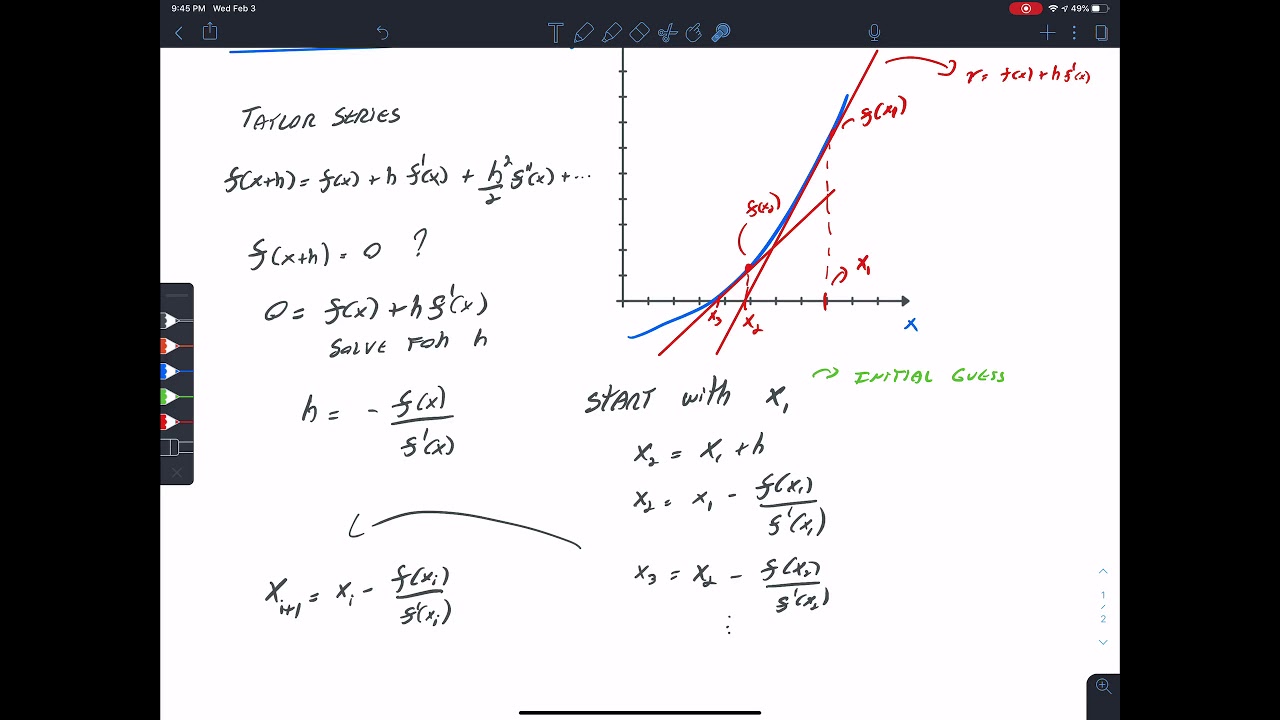 9:45 PM Wed Feb 3
49%
TAYLOR SERIES
f(x+h) = f(x) + h f'(x) + h²/2 f''(x) + ...
f(x+h) = 0 ?
0 = f(x) + h f'(x)
SOLVE FOR h
h = - f(x)/f'(x)
X_{i+1} = x_i - f(x_i)/f'(x_i)
r = f(x) + h f'(x)
f(x₁)
f(x₂)
x₁
x₃
x₂
x
START with x₁
INITIAL GUESS
x₂ = x₁ + h
x₂ = x₁ - f(x₁)/f'(x₁)
x₃ = x₂ - f(x₂)/f'(x₂)
⋮
1
/
2